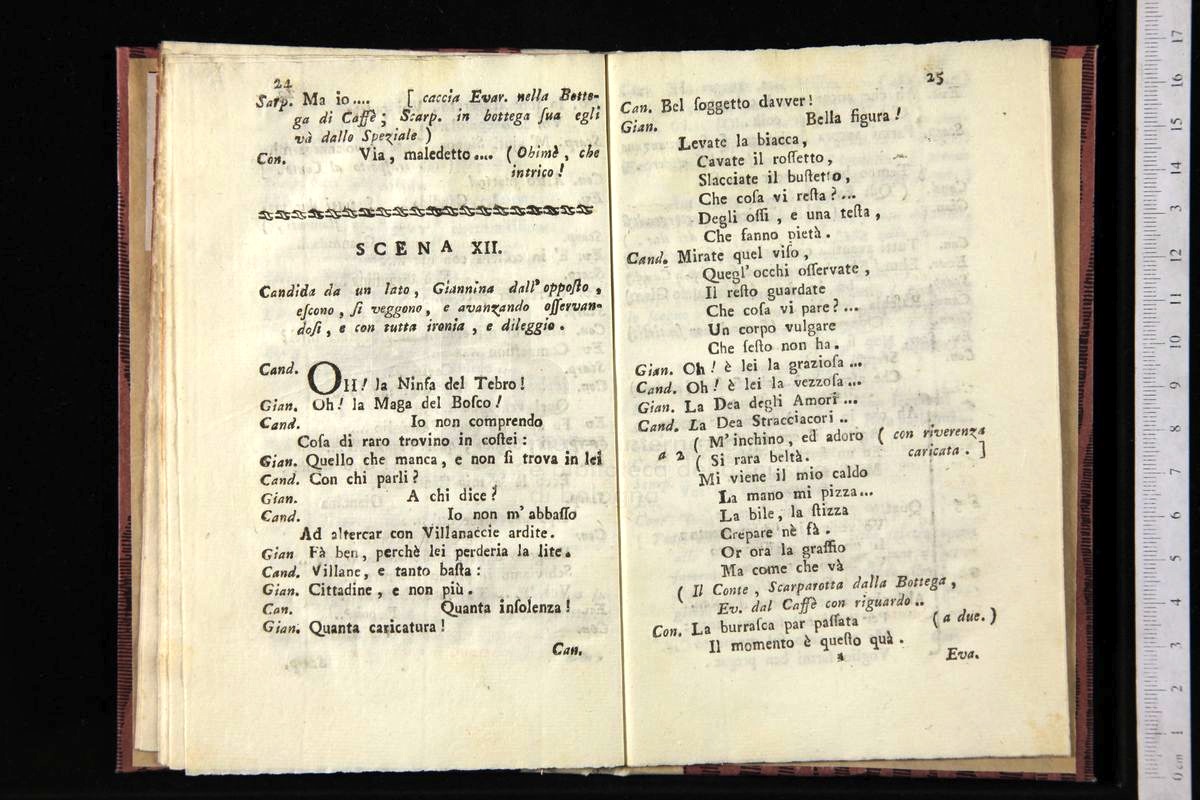 24
Sarp. Ma io.... [ caccia Evar. nella Botte-
ga di Caffè; Scarp. in bottega ſua egli
và dallo Speziale )
Con. Via, maledetto.... ( Ohimè, che
intrico!
SCENA XII.
Candida da un lato, Giannina dall' oppoſto,
eſcono, ſi veggono, e avanzando oſſervan-
doſi, e con tutta ironia, e dileggio.
Cand. OH! la Ninfa del Tebro!
Gian. Oh! la Maga del Boſco!
Cand. Io non comprendo
Coſa di raro trovino in coſtei:
Gian. Quello che manca, e non ſi trova in lei
Cand. Con chi parli?
Gian. A chi dice?
Cand. Io non m' abbaſſo
Ad altercar con Villanaccie ardite.
Gian Fà ben, perchè lei perderia la lite.
Cand. Villane, e tanto baſta:
Gian. Cittadine, e non più.
Can. Quanta inſolenza!
Gian. Quanta caricatura!
Can.
25
Can. Bel ſoggetto davver!
Gian. Bella figura!
Levate la biacca,
Cavate il roſſetto,
Slacciate il buſtetto,
Che coſa vi reſta?...
Degli oſſi, e una teſta,
Che fanno pietà.
Cand. Mirate quel viſo,
Quegl' occhi oſſervate,
Il reſto guardate
Che coſa vi pare?...
Un corpo vulgare
Che ſeſto non ha.
Gian. Oh! è lei la grazioſa...
Cand. Oh! è lei la vezzoſa...
Gian. La Dea degli Amori...
Cand. La Dea Stracciacori..
( M' inchino, ed adoro ( con riverenza
a 2 ( Si rara beltà. caricata. ]
Mi viene il mio caldo
La mano mi pizza...
La bile, la ſtizza
Crepare nè fà.
Or ora la graffio
Ma come che và
( Il Conte, Scarparotta dalla Bottega,
Ev. dal Caffè con riguardo..
Con. La burraſca par paſſata ( a due. )
Il momento è queſto quà.
Eva.
0 cm 1 2 3 4 5 6 7 8 9 10 11 12 13 14 15 16 17